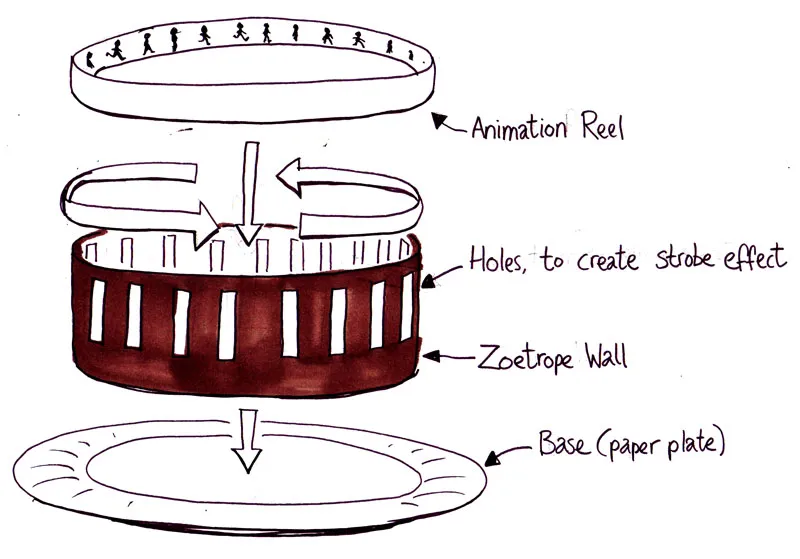 Animation Reel
Holes, to create strobe effect
Zoetrope Wall
Base (paper plate)